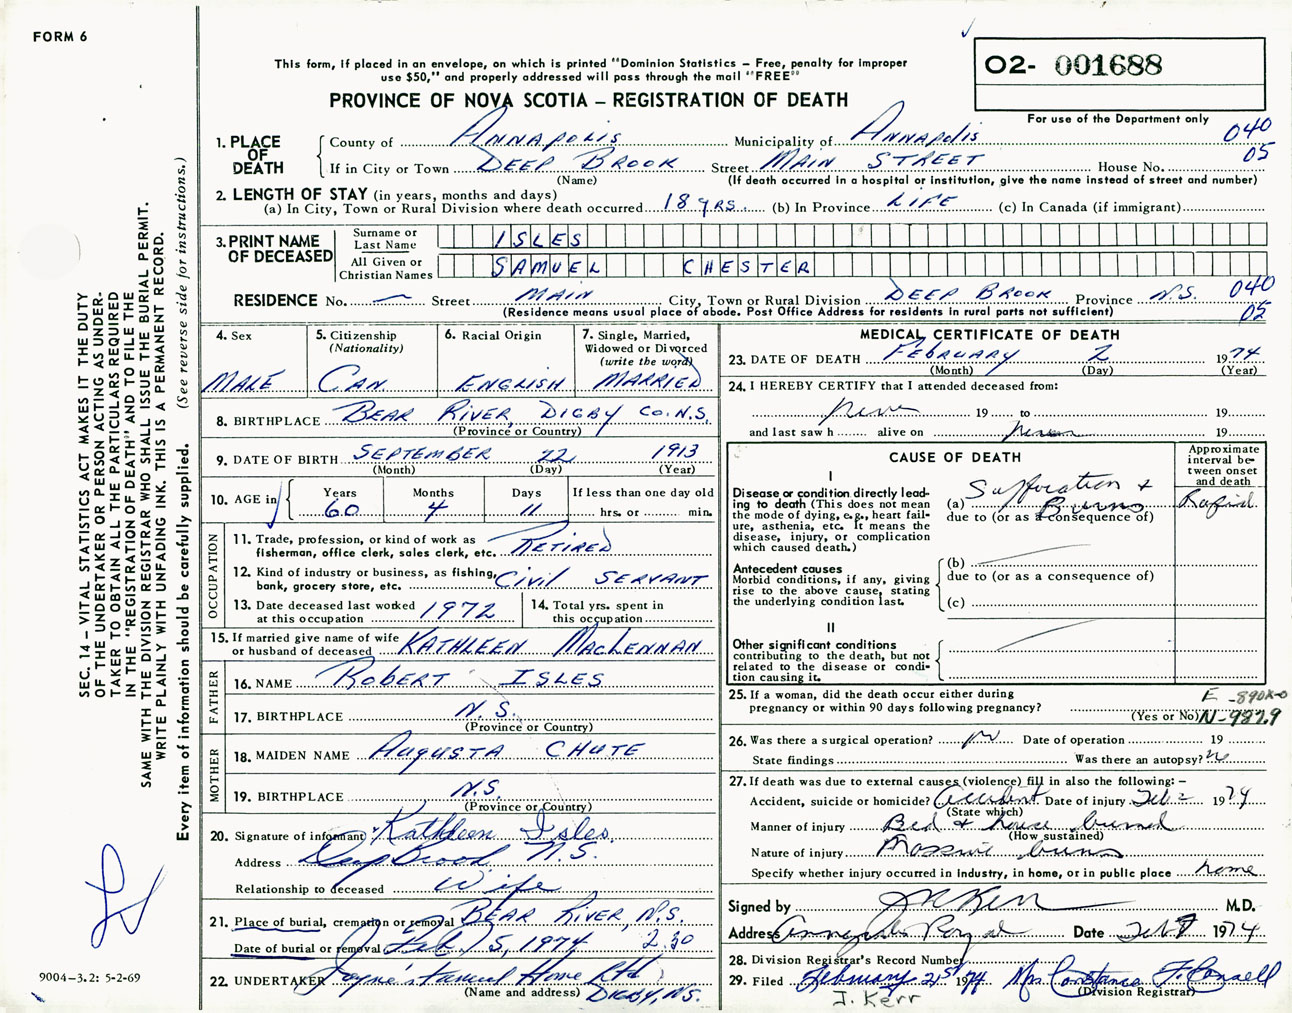 FORM 6
This form, if placed in an envelope, on which is printed "Dominion Statistics – Free, penalty for improper
use $50," and properly addressed will pass through the mail "FREE"
PROVINCE OF NOVA SCOTIA – REGISTRATION OF DEATH
02- 001688
For use of the Department only
040
05
1. PLACE OF DEATH
County of ANNAPOLIS Municipality of ANNAPOLIS
If in City or Town DEEP BROOK Street MAIN STREET House No.
(Name) (If death occurred in a hospital or institution, give the name instead of street and number)
2. LENGTH OF STAY (in years, months and days)
(a) In City, Town or Rural Division where death occurred 18 YRS. (b) In Province LIFE (c) In Canada (if immigrant)
3. PRINT NAME OF DECEASED
Surname or Last Name ISLES
All Given or Christian Names SAMUEL CHESTER
RESIDENCE No. — Street MAIN City, Town or Rural Division DEEP BROOK Province N.S. 040
(Residence means usual place of abode. Post Office Address for residents in rural parts not sufficient) 05
4. Sex MALE
5. Citizenship (Nationality) CAN
6. Racial Origin ENGLISH
7. Single, Married, Widowed or Divorced (write the word) MARRIED
8. BIRTHPLACE BEAR RIVER, DIGBY CO. N.S.
(Province or Country)
9. DATE OF BIRTH SEPTEMBER 22 1913
(Month) (Day) (Year)
10. AGE in Years 60 Months 4 Days 11 If less than one day old hrs. or min.
OCCUPATION
11. Trade, profession, or kind of work as fisherman, office clerk, sales clerk, etc. RETIRED
12. Kind of industry or business, as fishing, bank, grocery store, etc. CIVIL SERVANT
13. Date deceased last worked at this occupation 1972
14. Total yrs. spent in this occupation
15. If married give name of wife or husband of deceased KATHLEEN MACLENNAN
FATHER
16. NAME ROBERT ISLES
17. BIRTHPLACE N.S.
(Province or Country)
MOTHER
18. MAIDEN NAME AUGUSTA CHUTE
19. BIRTHPLACE N.S.
(Province or Country)
20. Signature of informant Kathleen Isles
Address Deep Brook N.S.
Relationship to deceased Wife
21. Place of burial, cremation or removal BEAR RIVER, N.S.
Date of burial or removal Feb 5, 1974 2.30
22. UNDERTAKER Jayne's Funeral Home Ltd
(Name and address) DIGBY, N.S.
MEDICAL CERTIFICATE OF DEATH
23. DATE OF DEATH FEBRUARY 2 1974
(Month) (Day) (Year)
24. I HEREBY CERTIFY that I attended deceased from:
never 19 to 19
and last saw h alive on never 19
CAUSE OF DEATH
Approximate interval between onset and death
I
Disease or condition directly leading to death (This does not mean the mode of dying, e.g., heart failure, asthenia, etc. It means the disease, injury, or complication which caused death.)
(a) Suffocation & Burns Rapid
due to (or as a consequence of)
Antecedent causes
Morbid conditions, if any, giving rise to the above cause, stating the underlying condition last.
(b)
due to (or as a consequence of)
(c)
II
Other significant conditions
contributing to the death, but not related to the disease or condition causing it.
25. If a woman, did the death occur either during
pregnancy or within 90 days following pregnancy?
(Yes or No)
E-890X-0
N-987.9
26. Was there a surgical operation? no Date of operation 19
State findings Was there an autopsy? no
27. If death was due to external causes (violence) fill in also the following: –
Accident, suicide or homicide? Accident Date of injury Feb 2 1974
(State which)
Manner of injury Bed & house burned
(How sustained)
Nature of injury Massive burns
Specify whether injury occurred in industry, in home, or in public place home
Signed by J Kerr M.D.
Address Annapolis Royal Date Feb 7 1974
28. Division Registrar's Record Number
29. Filed February 21st 1974 Mrs Constance F.
(Division Registrar)
J. Kerr
SEC. 14 – VITAL STATISTICS ACT MAKES IT THE DUTY
OF THE UNDERTAKER OR PERSON ACTING AS UNDER-
TAKER TO OBTAIN ALL THE PARTICULARS REQUIRED
IN THE "REGISTRATION OF DEATH" AND TO FILE THE
SAME WITH THE DIVISION REGISTRAR WHO SHALL ISSUE THE BURIAL PERMIT.
WRITE PLAINLY WITH UNFADING INK. THIS IS A PERMANENT RECORD.
Every item of information should be carefully supplied. (See reverse side for instructions.)
9004–3.2: 5-2-69